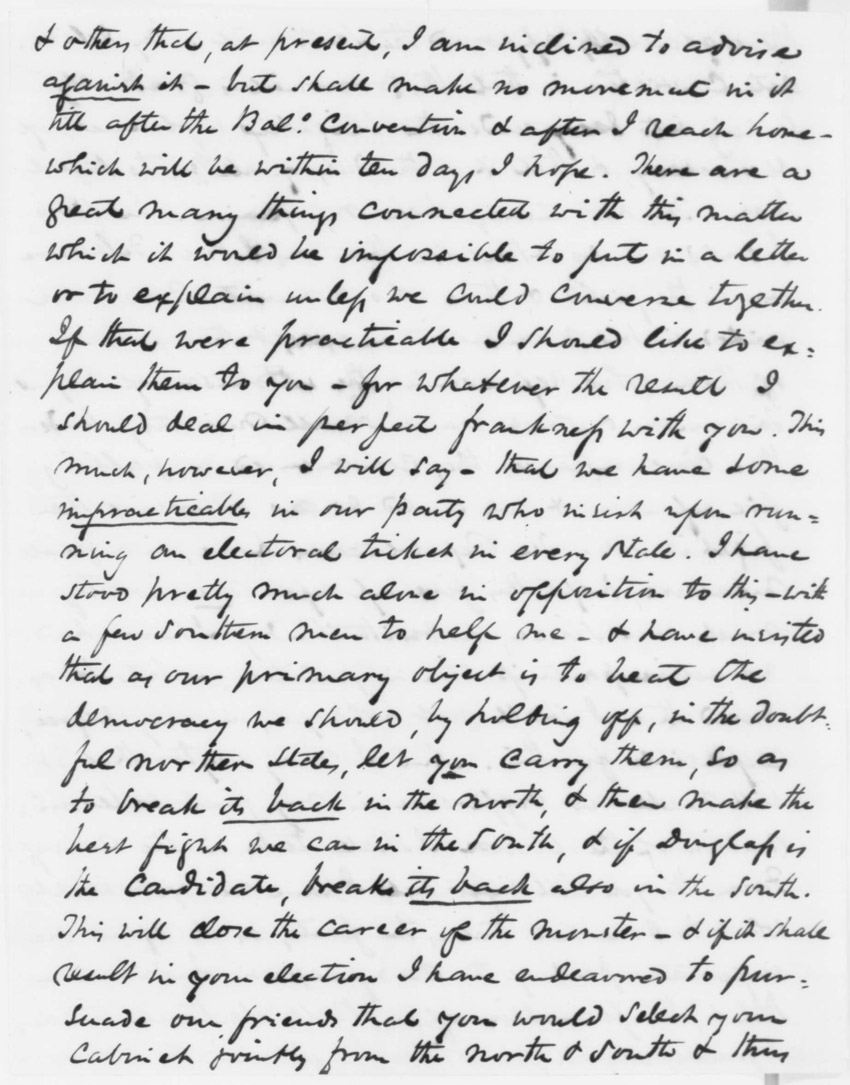 & others that, at present, I am inclined to advise
against it – but shall make no movement in it
till after the Balo. Convention & after I reach home –
which will be within ten days I hope. There are a
great many things connected with this matter
which it would be impossible to put in a letter
or to explain unless we could converse together.
If that were practicable I should like to ex=
plain them to you – for whatever the result I
should deal in perfect frankness with you. This
much, however, I will say – that we have some
impracticables in our party who insist upon run=
ning an electoral ticket in every state. I have
stood pretty much alone in opposition to this – with
a few southern men to help me – & have insisted
that as our primary object is to beat the
democracy we should, by holding off, in the doubt=
ful northern states, let you carry them, so as
to break its back in the north, & then make the
best fight we can in the South, & if Douglass is
the candidate, break its back also in the South.
This will close the career of the monster – & if it shall
result in your election I have endeavored to pur=
suade our friends that you would select your
Cabinet jointly from the north & South & thus